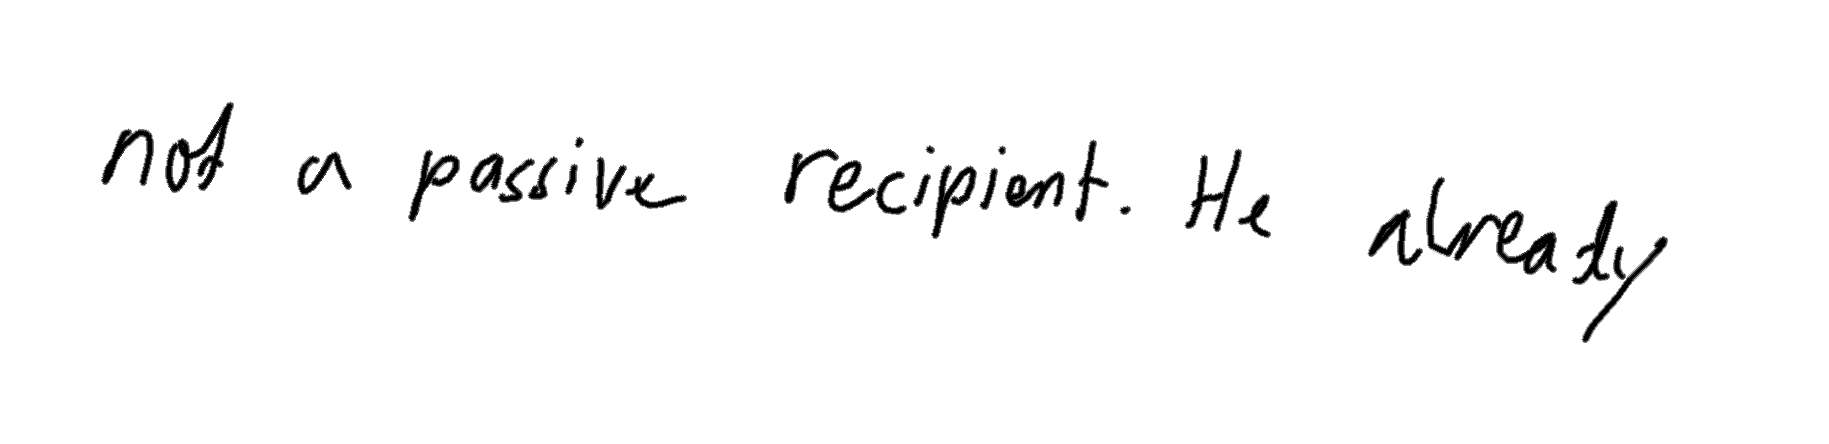 not a passive recipient. He already